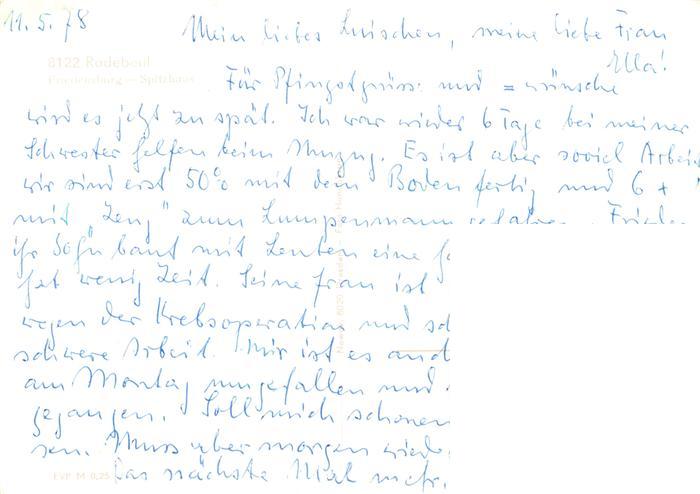 11.5.78
Mein liebes Luischen, meine liebe Frau
Ella!
8122 Radebeul
Friedensburg — Spitzhaus
Für Pfingstgrüsse und =wünsche
wird es jetzt zu spät. Ich war wieder 6 Tage bei meiner
Schwester helfen beim Umzug. Es ist aber soviel Arbeit
wir sind erst 50% mit dem Boden fertig und 6 x
mit "Zeug" zum Lumpenmann gefahren. Frieder
ihr Sohn baut mit Leuten eine
hat wenig Zeit. Seine Frau ist
wegen der Krebsoperation und
schwere Arbeit. Mir ist es auch
am Montag umgefallen und
gegangen. Soll mich schonen
sen. Muss aber morgen wieder
EVP M 0,25
Das nächste Mal mehr.